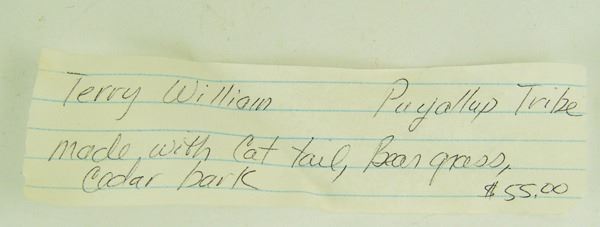 Terry William Puyallup Tribe
made with Cat tail, Bear grass,
Cedar bark $55.00